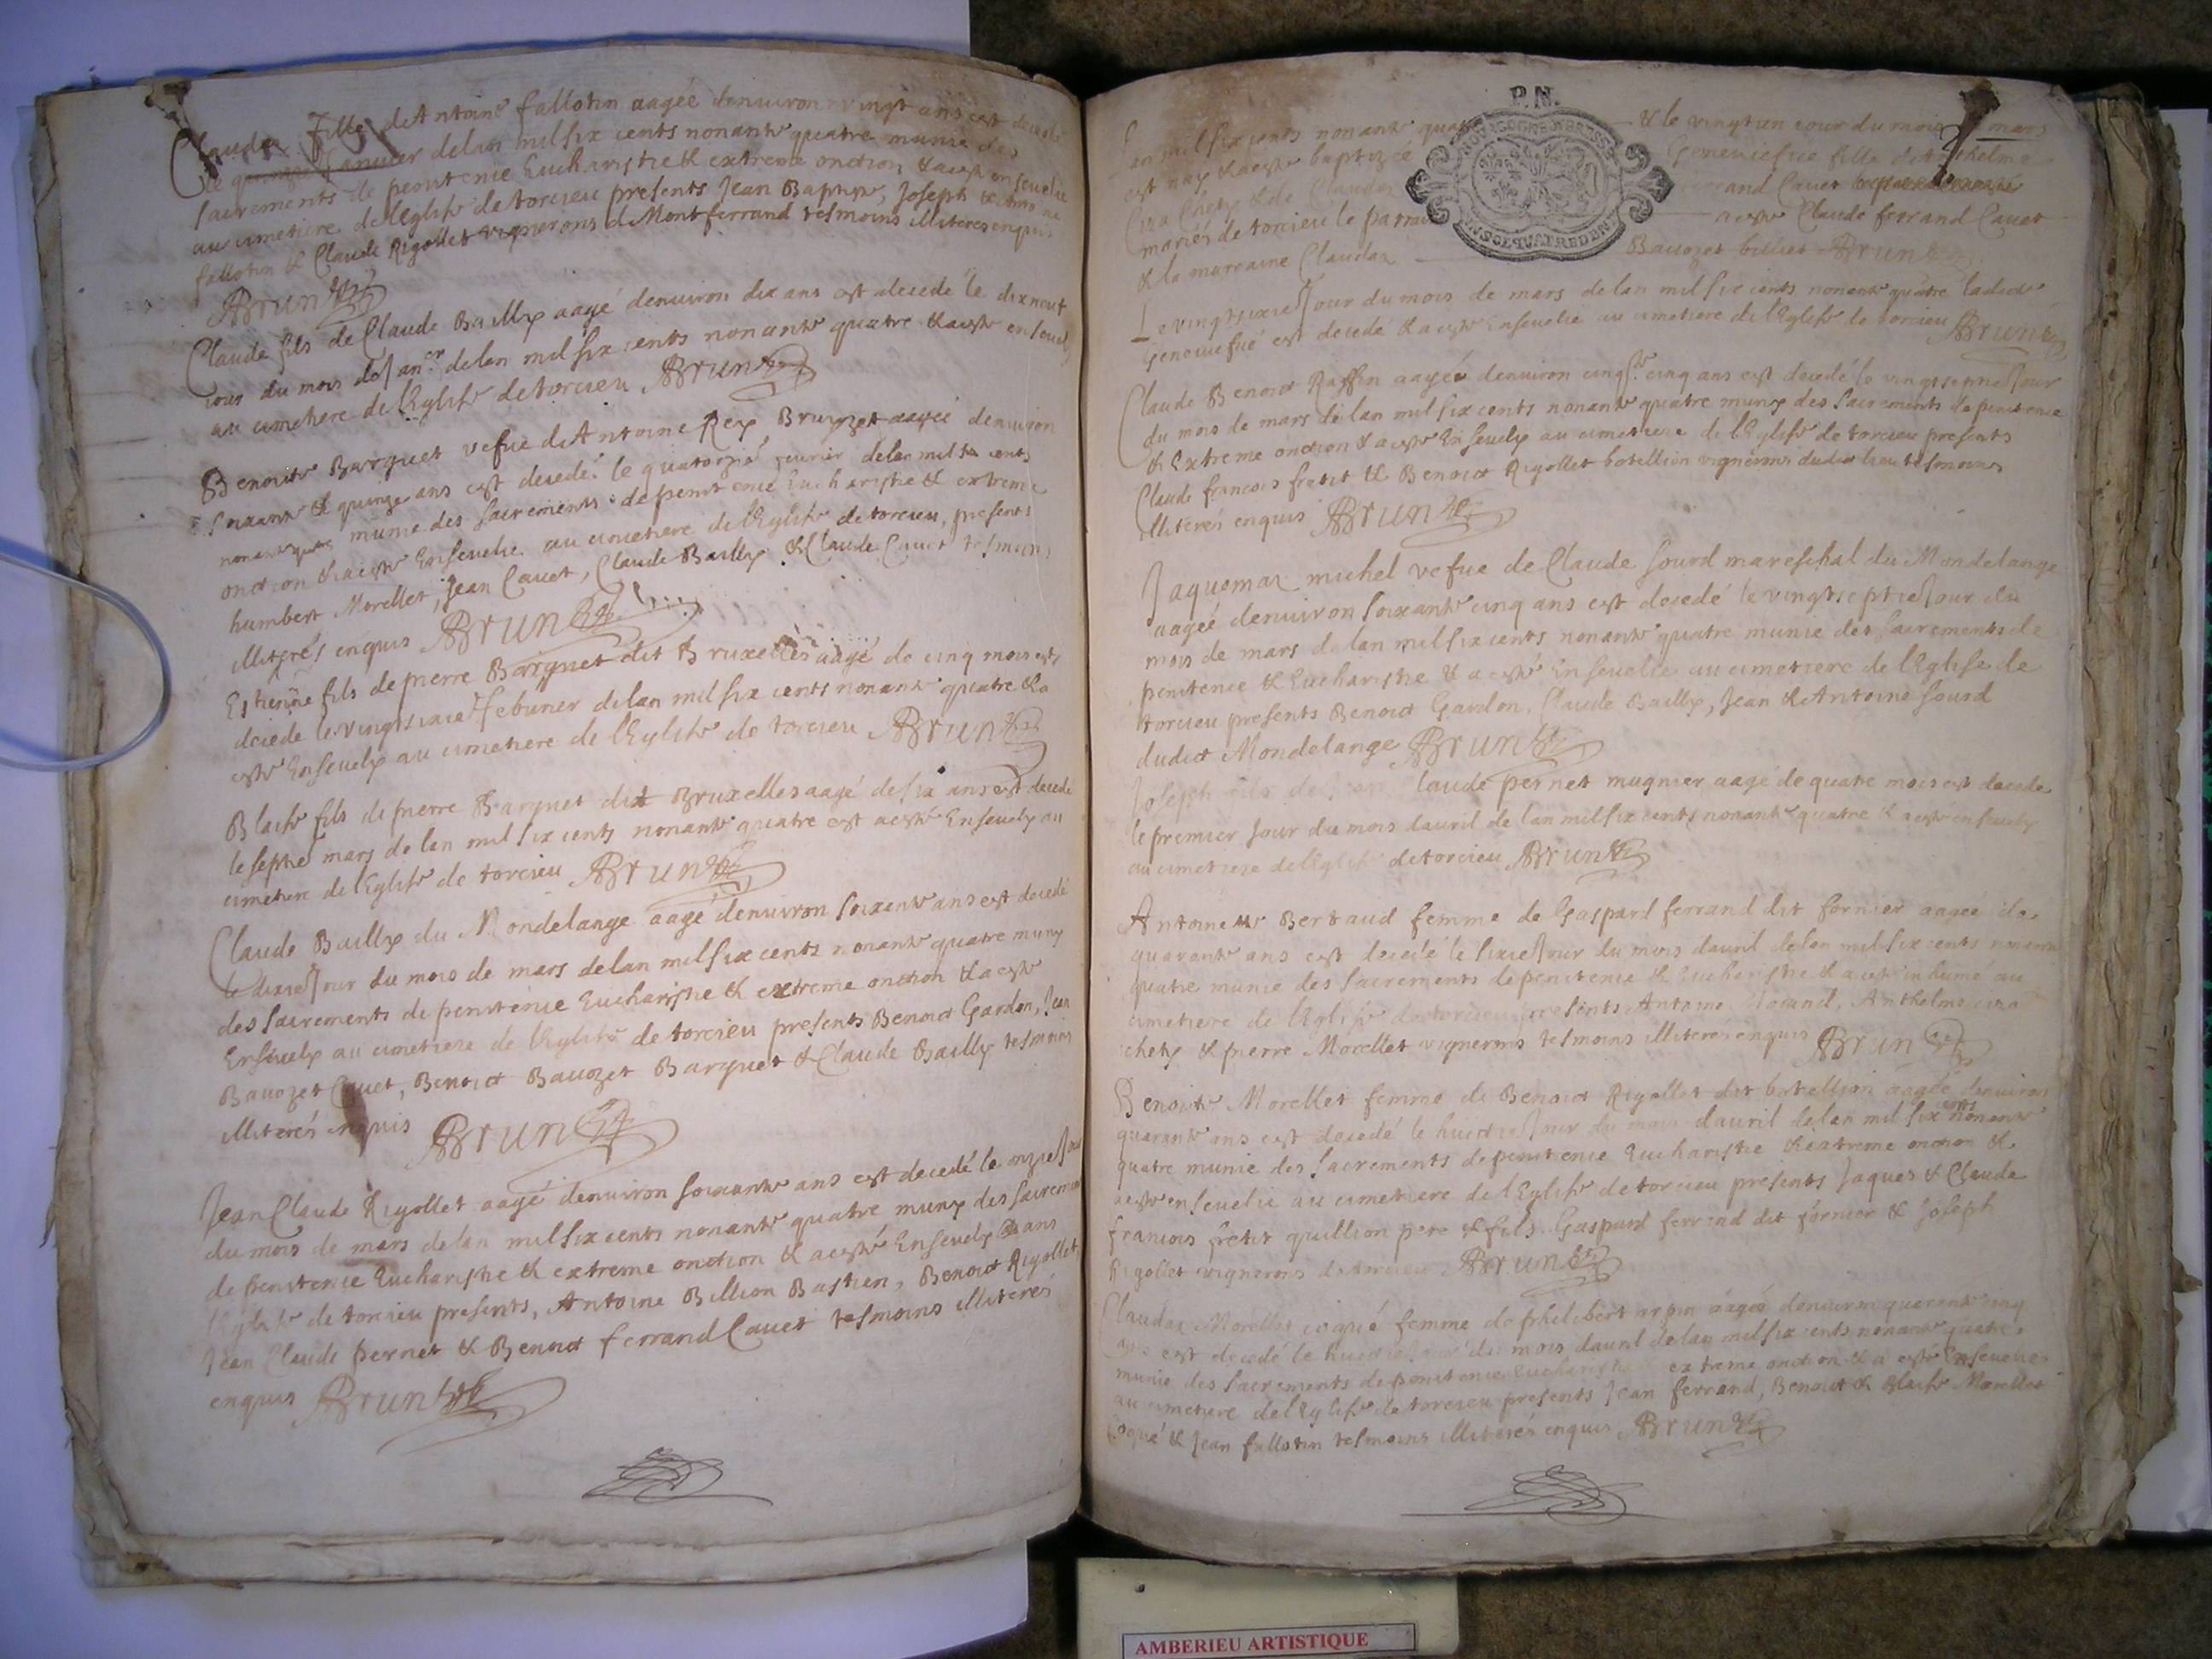 Claudaz fille de Antoine fallotin aagée denuiron vingt ans est decedé
le quinze Januier delan mil six cents nonante quatre munie des
sacrements de penitence Eucharistie & extreme onction & a esté enseuelie
au cimetiere de lEglise de torcieu presents Jean Baptiste, Joseph & Antoine
fallotin & Claude Rigollet vignerons de Montferrand tesmoins illiterés enquis
ABrun
Claude fils de Claude Bailly aagé denuiron dix ans est decedé le dixneuf
iour du mois de Janer delan mil six cents nonante quatre & a esté enseuely
au cimetiere de lEglise de torcieu ABrun
Benoite Barquet vefue de Antoine Rey Bruyzet aagée denuiron
soixante & quinze ans est decedé le quatorzie feurier delan mil six cents
nonante quatre munie des sacrements de penitence Eucharistie & extreme
onction & a esté Enseuelie au cimetiere de lEglise de torcieu, presents
humbert Morellet, Jean Cauet, Claude Bailly & Claude Cauet tesmoins
illiterés enquis ABrun
Estienne fils de pierre Barquet dit Bruxelles aagé de cinq mois est
decedé le vingtsixie feburier delan mil six cents nonante quatre & a
esté Enseuely au cimetiere de lEglise de torcieu ABrun
Blaise fils de pierre Barquet dit Bruxelles aagé de six ans est decede
le septie mars de lan mil six cents nonante quatre est a esté Enseuely au
cimetiere de lEglise de torcieu ABrun
Claude Bailly du Mondelange aagé denuiron soixante ans est decedé
le dixie Jour du mois de mars delan mil six cents nonante quatre muny
des sacrements de penitence Eucharistie & extreme onction & a esté
Enseuely au cimetiere de lEglise de torcieu presents Benoit Gardon, Jean
Bauozet Cauet, Benoit Bauozet Barquet & Claude Bailly tesmoins
illiterés enquis ABrun
Jean Claude Rigollet aagé denuiron soixante ans est decedé le onzie Jour
du mois de mars delan mil six cents nonante quatre muny des sacrements
de penitence Eucharistie & extreme onction & a esté Enseuely dans
lEglise de torcieu presents, Antoine Billion Bastien, Benoit Rigollet,
Jean Claude pernet & Benoit ferrand Cauet tesmoins illiterés
enquis ABrun
P.N.
Lan mil six cents nonante quatre & le vingtien iour du mois mars
est nay & a esté baptizée Geneuiefue fille de Anthelme
Cira Chety & de Claudaz ferrand Cauet
mariés de torcieu le parrain a esté Claude ferrand Cauet
& la marraine Claudaz Bauozet billiet ABrun
Le vingtsixie Jour du mois de mars delan mil six cents nonante quatre ladicte
Geneuiefue est decedé & a esté Enseuelie au cimetiere de lEglise de torcieu ABrun
Claude Benoit Raffin aagée denuiron cinqte cinq ans est decedé le vingtseptie Jour
du mois de mars delan mil six cents nonante quatre muny des sacrements de penitence
& Extreme onction & a esté Enseuely au cimetiere de lEglise de torcieu presents
Claude francois fretit & Benoit Rigollet botellion vignerons dudit lieu tesmoins
illiterés enquis ABrun
Jaquemaz michel vefue de Claude sourd mareschal du Mondelange
aagée denuiron soixante cinq ans est decedé le vingtseptie Jour du
mois de mars delan mil six cents nonante quatre munie des sacrements de
penitence & Eucharistie & a esté Enseuelie au cimetiere de lEglise de
torcieu presents Benoit Gardon, Claude Bailly, Jean & Antoine sourd
dudit Mondelange ABrun
Joseph fils de Jean Claude pernet mugnier aagé de quatre mois est decede
le premier Jour du mois dauril de lan mil six cents nonante quatre & a esté enseuely
au cimetiere de lEglise de torcieu ABrun
Antoinette Bertaud femme de Gaspard ferrand dit fornier aagée de
quarante ans est decedé le sixie Jour du mois dauril delan mil six cents nonante
quatre munie des sacrements de penitence & Eucharistie & a esté inhumé au
cimetiere de lEglise de torcieu presents Antoine Morand, Anthelme cira
chety & pierre Morellet vignerons tesmoins illiterés enquis ABrun
Benoite Morellet femme de Benoit Rigollet dit botellion aagée denuiron
quarante ans est decedé le huictie Jour du mois dauril delan mil six cents nonante
quatre munie des sacrements de penitence Eucharistie & extreme onction &
a esté enseuelie au cimetiere de lEglise de torcieu presents Jaques & Claude
francois fretit quillion pere & fils, Gaspard ferrand dit fornier & Joseph
Rigollet vignerons de torcieu ABrun
Claudaz Morellet coqué femme de philibert arpin aagée denuiron quarante cinq
ans est decedé le huictie Jour du mois dauril delan mil six cents nonante quatre
munie des sacrements de penitence Eucharistie extreme onction & a esté Enseuelie
au cimetiere de lEglise de torcieu presents Jean ferrand, Benoit & Blaise Morellet
coqué & Jean fallotin tesmoins illiterés enquis ABrun
AMBERIEU ARTISTIQUE